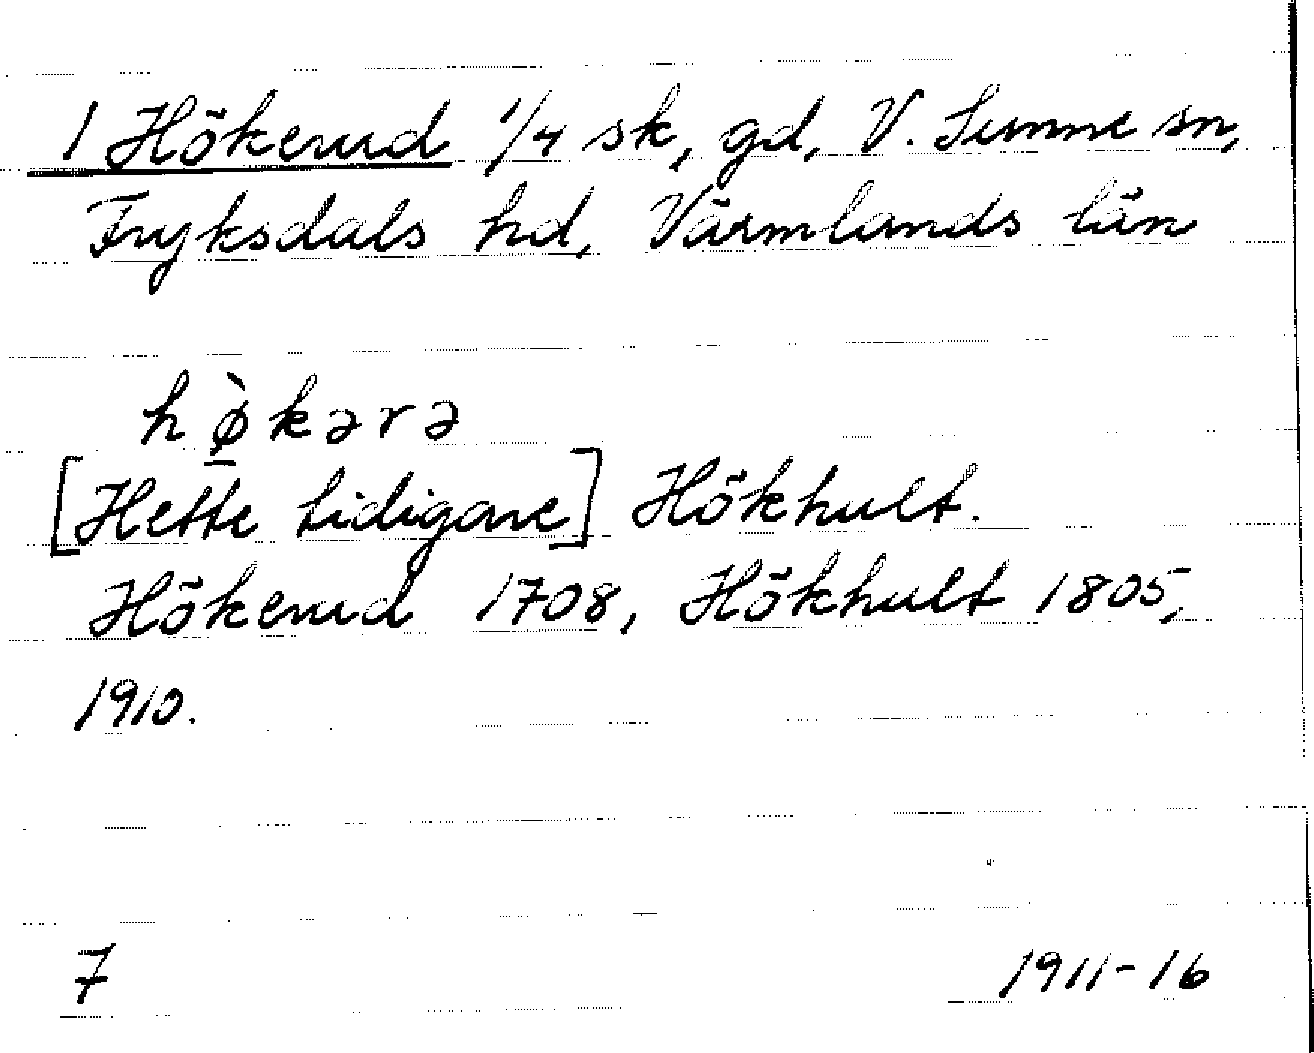 1 Hökerud 1/4 sk, gd, V. Sunne sn,
Fryksdals hd, Värmlands län
hø̠̀kərə
[Hette tidigare] Hökhult.
Hökerud 1708, Hökhult 1805,
1910.
7 1911-16